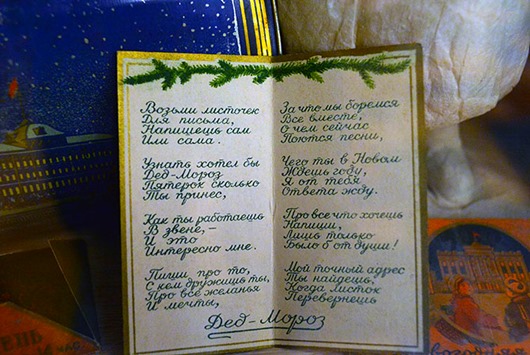 Возьми листочек
Для письма,
Напишешь сам
Или сама.
Узнать хотел бы
Дед-Мороз
Пятерок сколько
Ты принес,
Как ты работаешь
В звене,-
И это
Интересно мне.
Пиши про то,
С кем дружишь ты,
Про все желанья
И мечты,
За что мы боремся
Все вместе,
О чем сейчас
Поются песни,
Чего ты в Новом
Ждешь году,
Я от тебя
Ответа жду.
Про все что хочешь
Напиши,
Лишь только
Было б от души!
Мой точный адрес
Ты найдешь,
Когда листок
Перевернешь
Дед-Мороз